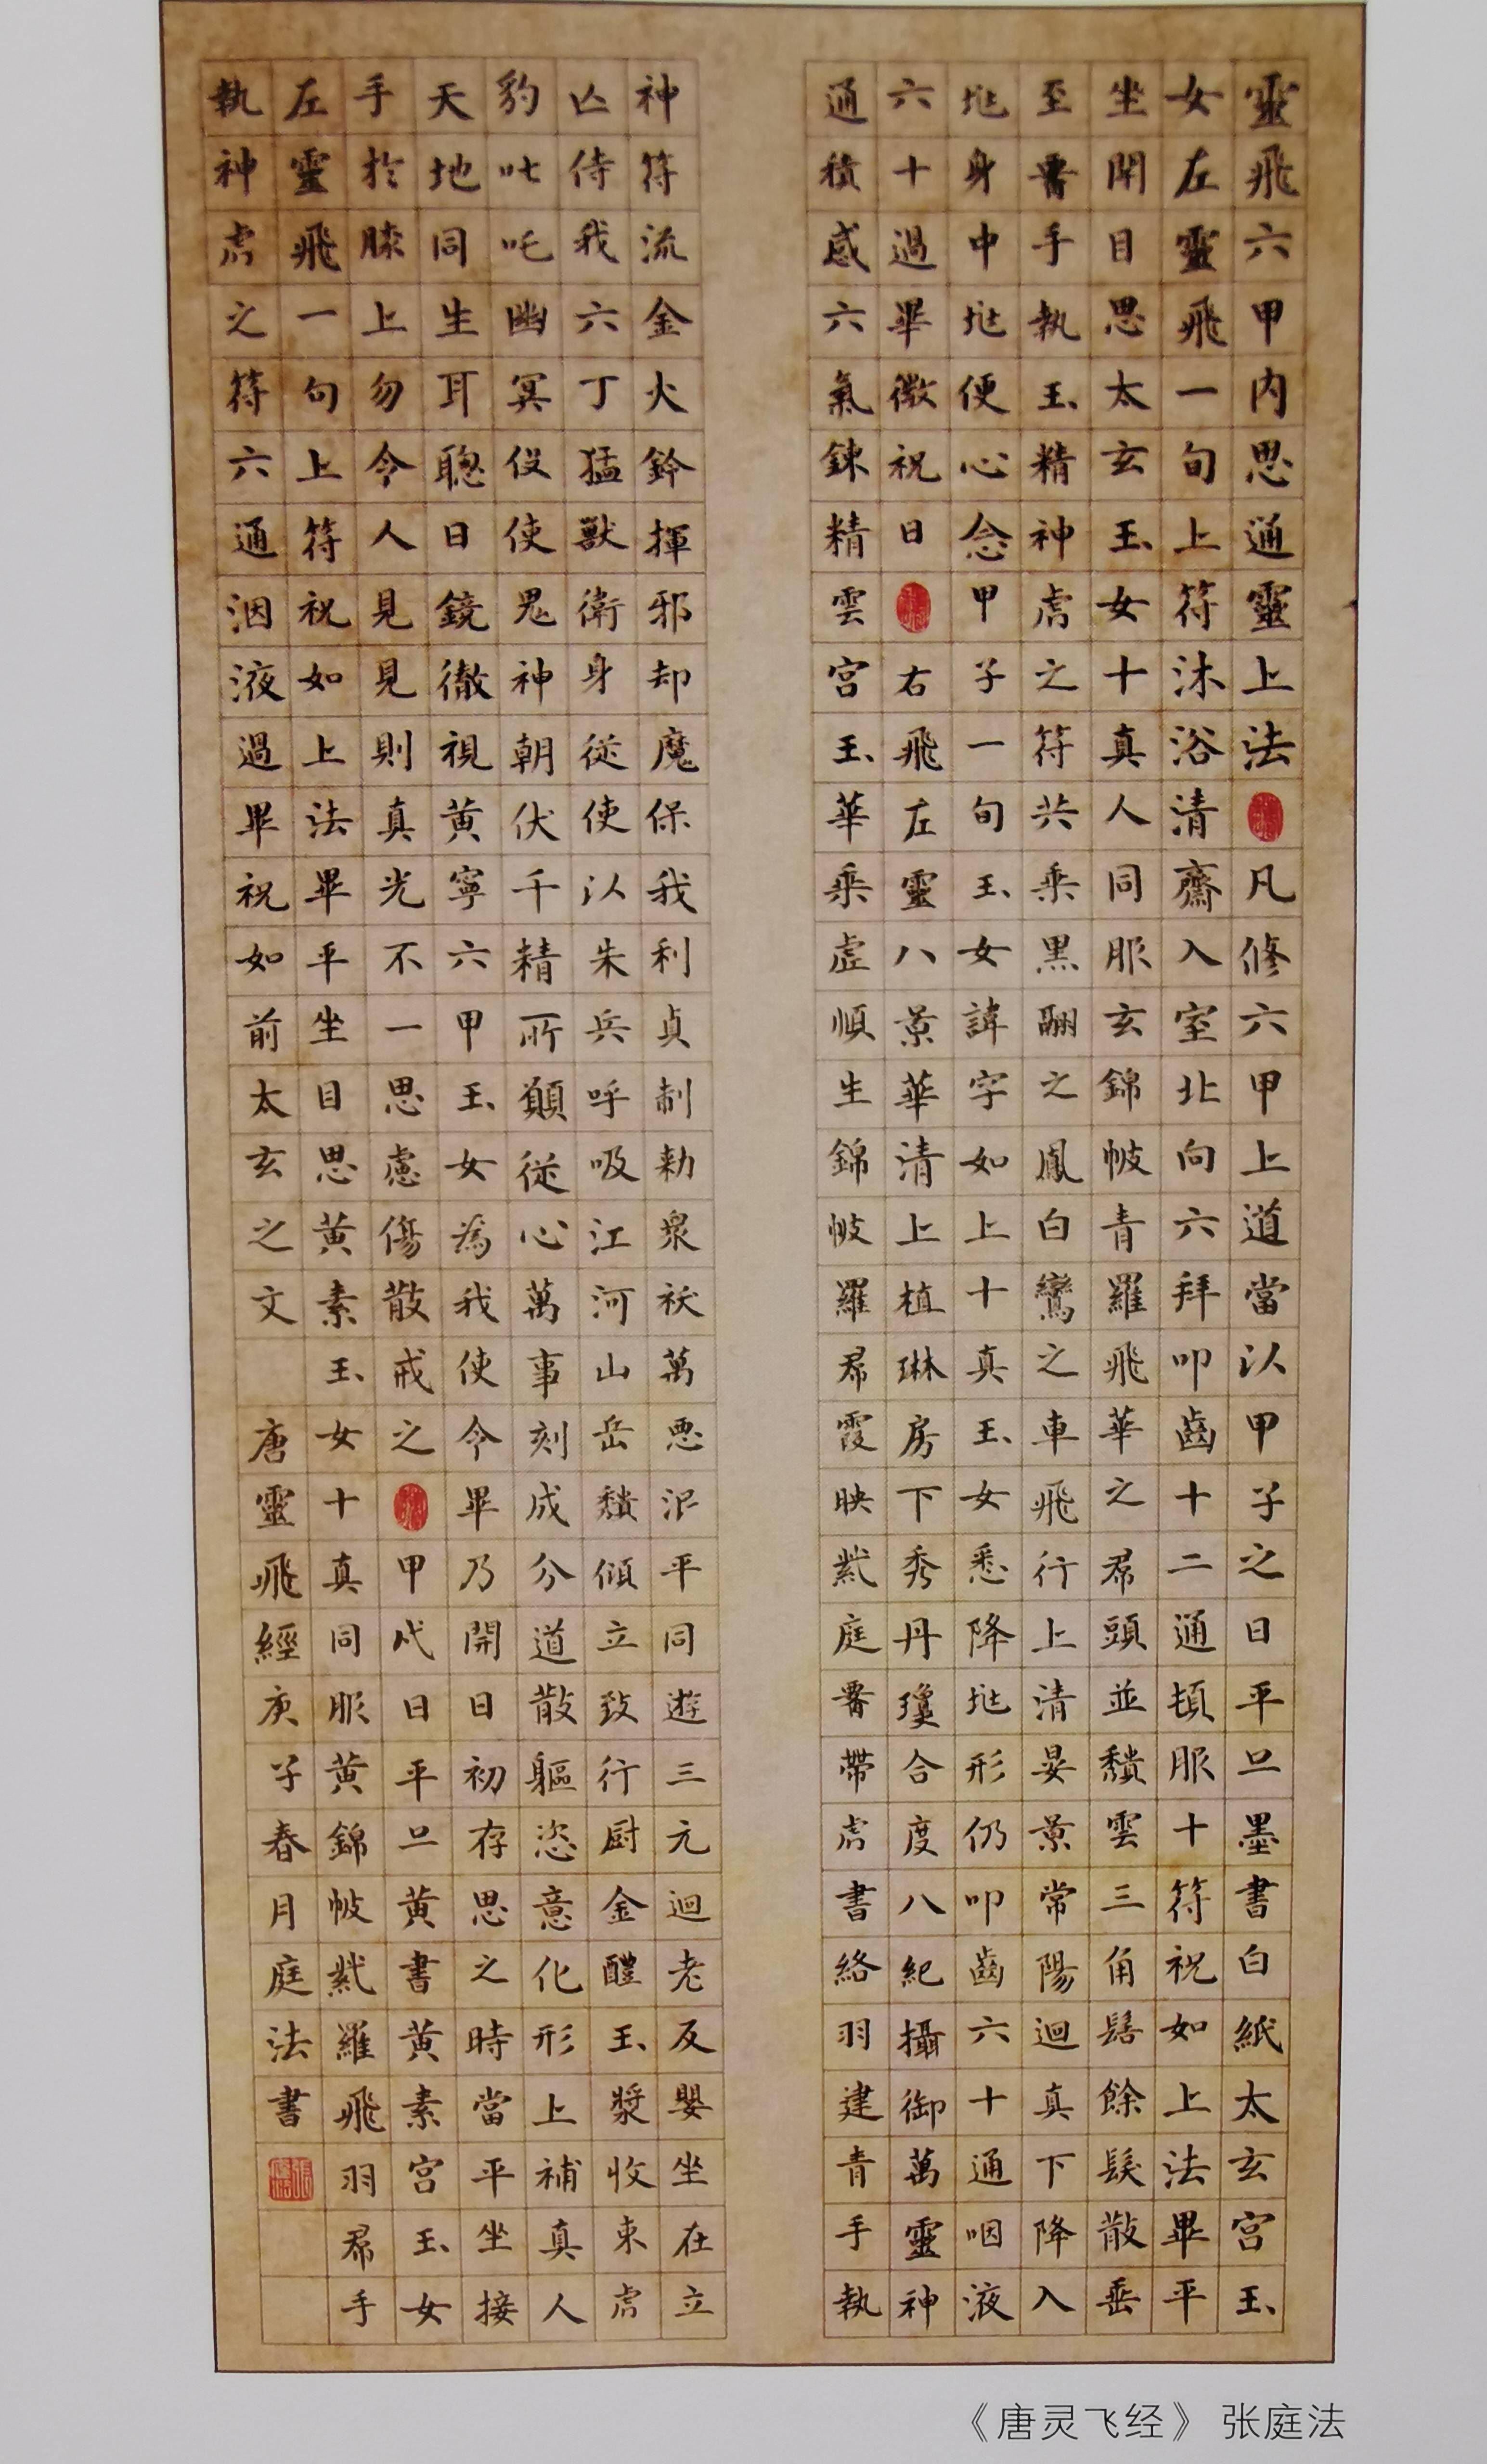 靈飛六甲内思通靈上法凡修六甲上道當以甲子之日平旦墨書白紙太玄宮玉
女左靈飛一旬上符沐浴清齋入室北向六拜叩齒十二通頓服十符祝如上法畢平
坐閉目思太玄玉女十真人同服玄錦帔青羅飛華之帬頭並頹雲三角髻餘髮散垂
至腰手執玉精神虎之符共乘黑翮之鳳白鸞之車飛行上清晏景常陽迴真下降入
兆身中兆便心念甲子一旬玉女諱字如上十真玉女悉降兆形仍叩齒六十通咽液
六十過畢微祝曰右飛左靈八景華清上植琳房下秀丹瓊合度八紀攝御萬靈神
通積感六氣鍊精雲宮玉華乘虛順生錦帔羅帬霞映紫庭腰帶虎書絡羽建青手執
神符流金火鈴揮邪却魔保我利貞制勑眾祅萬惡泯平同遊三元迴老反嬰坐在立
亾侍我六丁猛獸衛身從使以朱兵呼吸江河山岳頹傾立致行厨金醴玉漿收束虎
豹叱吒幽冥役使鬼神朝伏千精所願從心萬事刻成分道散軀恣意化形上補真人
天地同生耳聰目鏡徹視黃寧六甲玉女為我使令畢乃開目初存思之時當平坐接
手於膝上勿令人見見則真光不一思慮傷散戒之甲戌日平旦黃書黃素宮玉女
左靈飛一旬上符祝如上法畢平坐目思黃素玉女十真同服黃錦帔紫羅飛羽帬手
執神虎之符六通洇液過畢祝如前太玄之文 唐靈飛經庚子春月庭法書
《唐灵飞经》张庭法